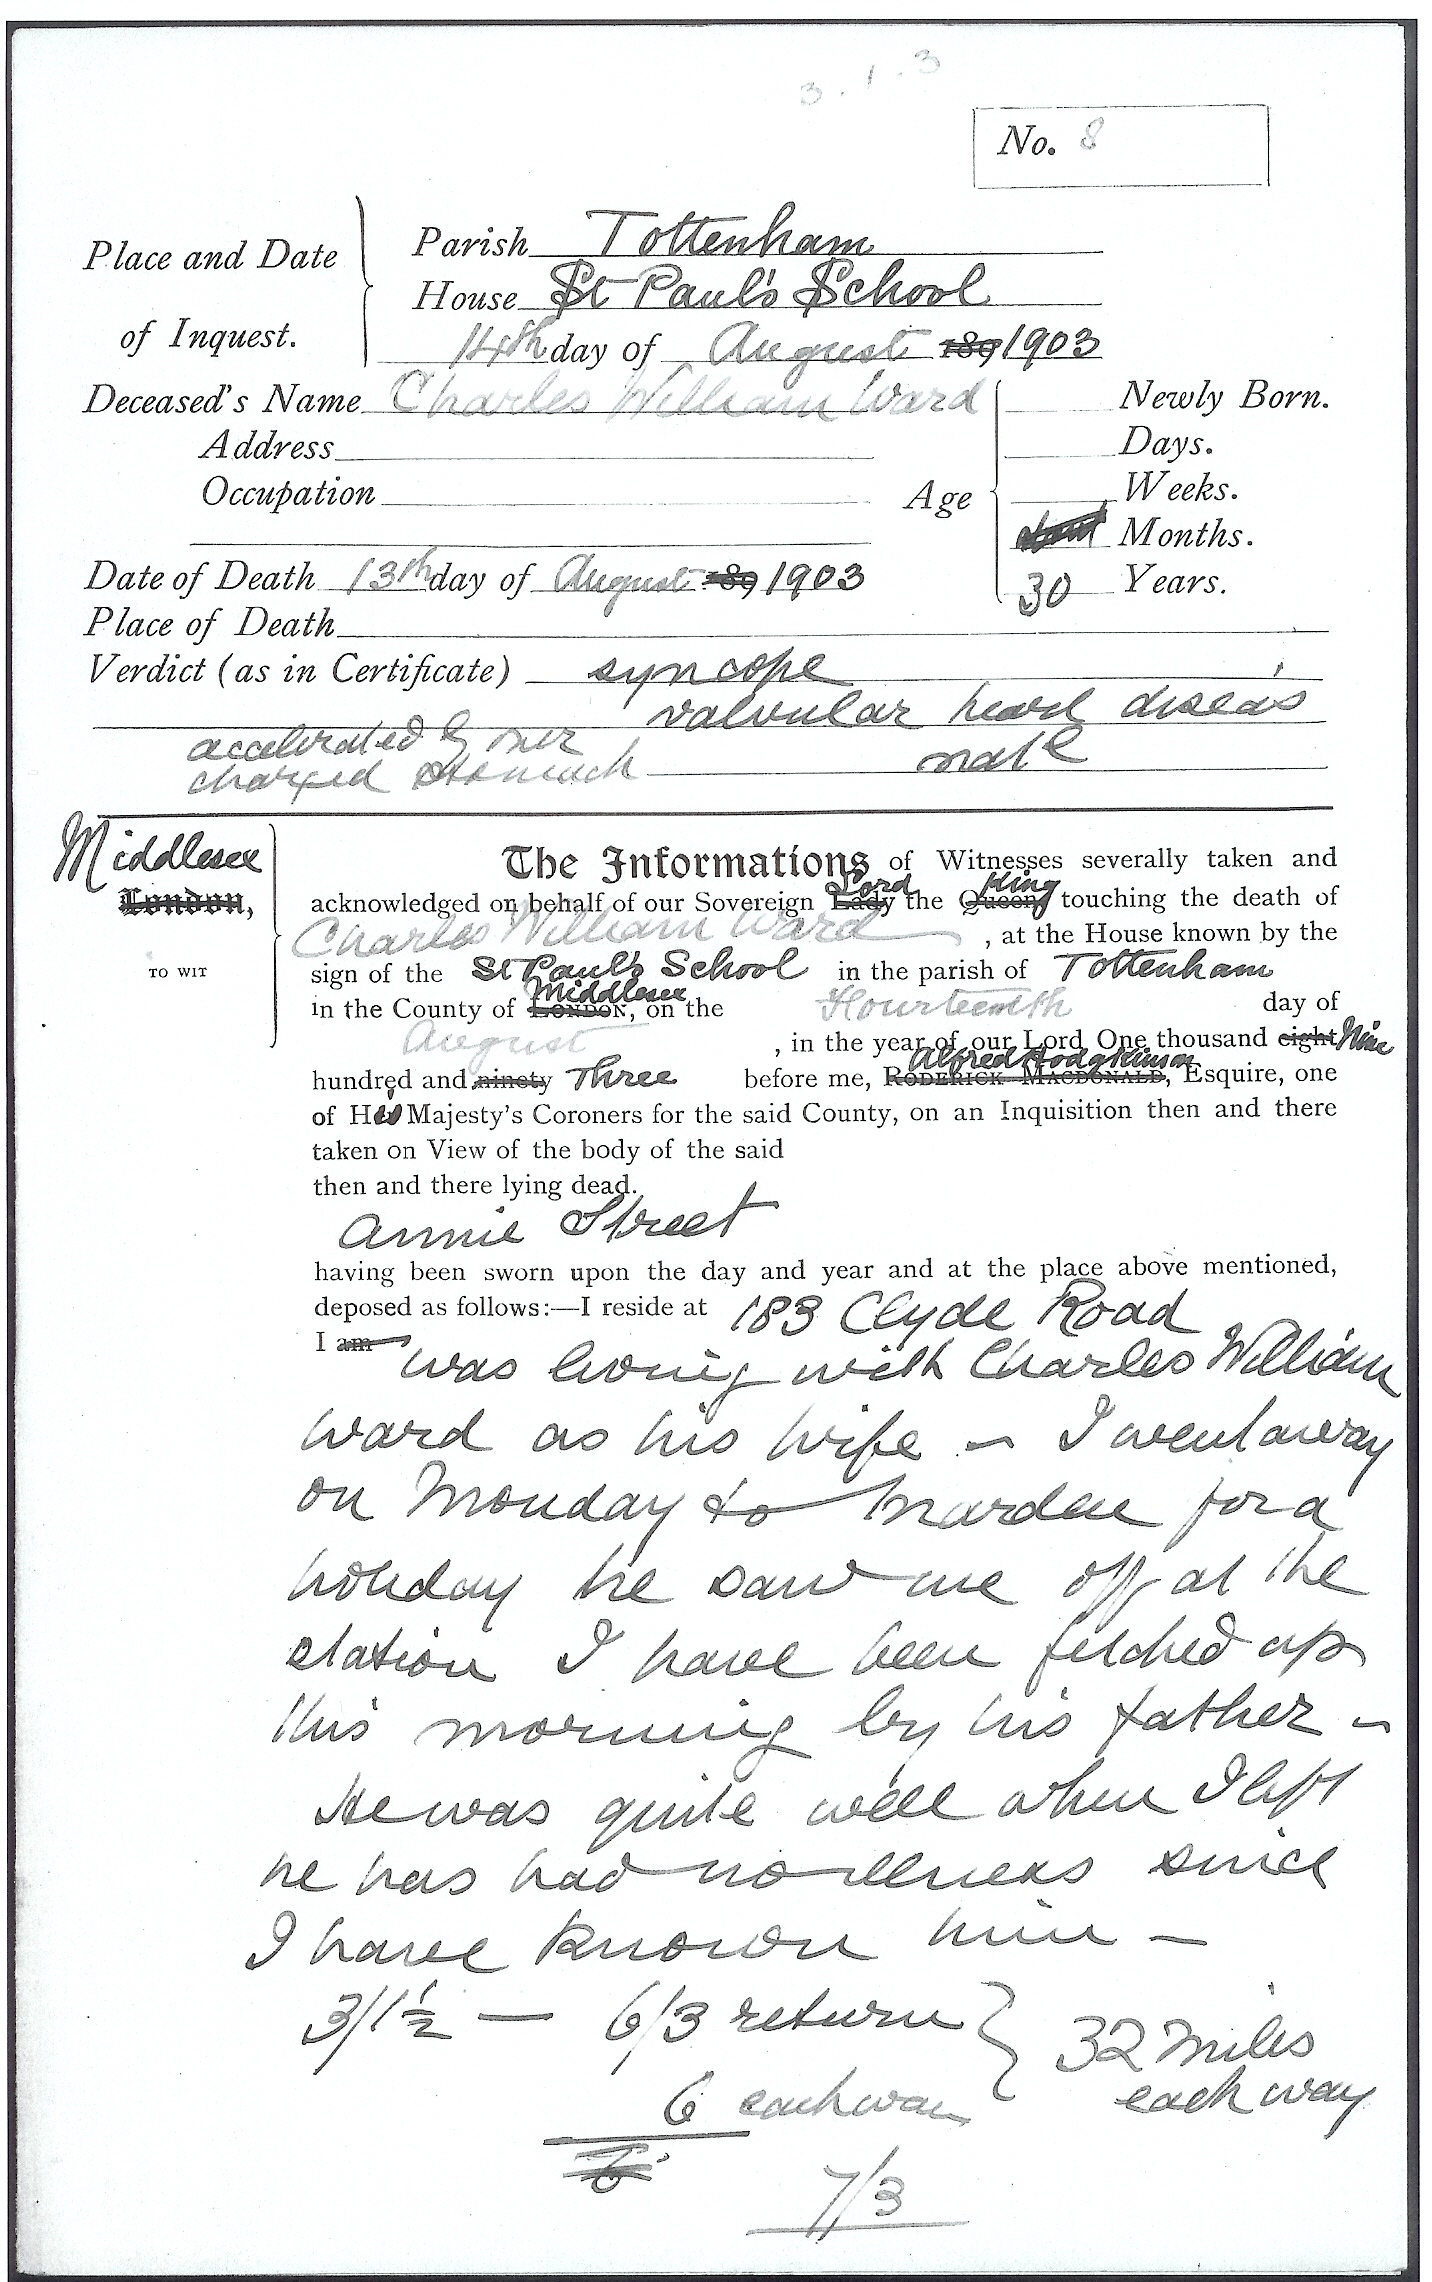 3.1.3
No. 8
Place and Date of Inquest.
Parish Tottenham
House St Paul's School
14th day of August 189 1903
Deceased's Name Charles William Ward
Address
Occupation
Age
Newly Born.
Days.
Weeks.
Months.
30 Years.
Date of Death 13th day of August 189 1903
Place of Death
Verdict (as in Certificate) syncope
valvular heart diseas
accelerated by over
charged stomach
male
Middlesex
London,
TO WIT
The Informations of Witnesses severally taken and
acknowledged on behalf of our Sovereign Lady Lord the Queen King touching the death of
Charles William Ward, at the House known by the
sign of the St Paul's School in the parish of Tottenham
in the County of London Middlesex, on the Fourteenth day of
August, in the year of our Lord One thousand eight Nine
hundred and ninety Three before me, RODERICK MACDONALD, Alfred Hodgkinson Esquire, one
of His Majesty's Coroners for the said County, on an Inquisition then and there
taken on View of the body of the said
then and there lying dead.
Annie Street
having been sworn upon the day and year and at the place above mentioned,
deposed as follows:—I reside at 183 Clyde Road
I am was living with Charles William
Ward as his wife – I went away
on Monday to Marden for a
holiday he saw me off at the
station I have been fetched up
this morning by his father –
He was quite well when I left
he has had no illness since
I have known him –
3/1½ — 6/3 return } 32 miles
6 each way each way
6
7/3